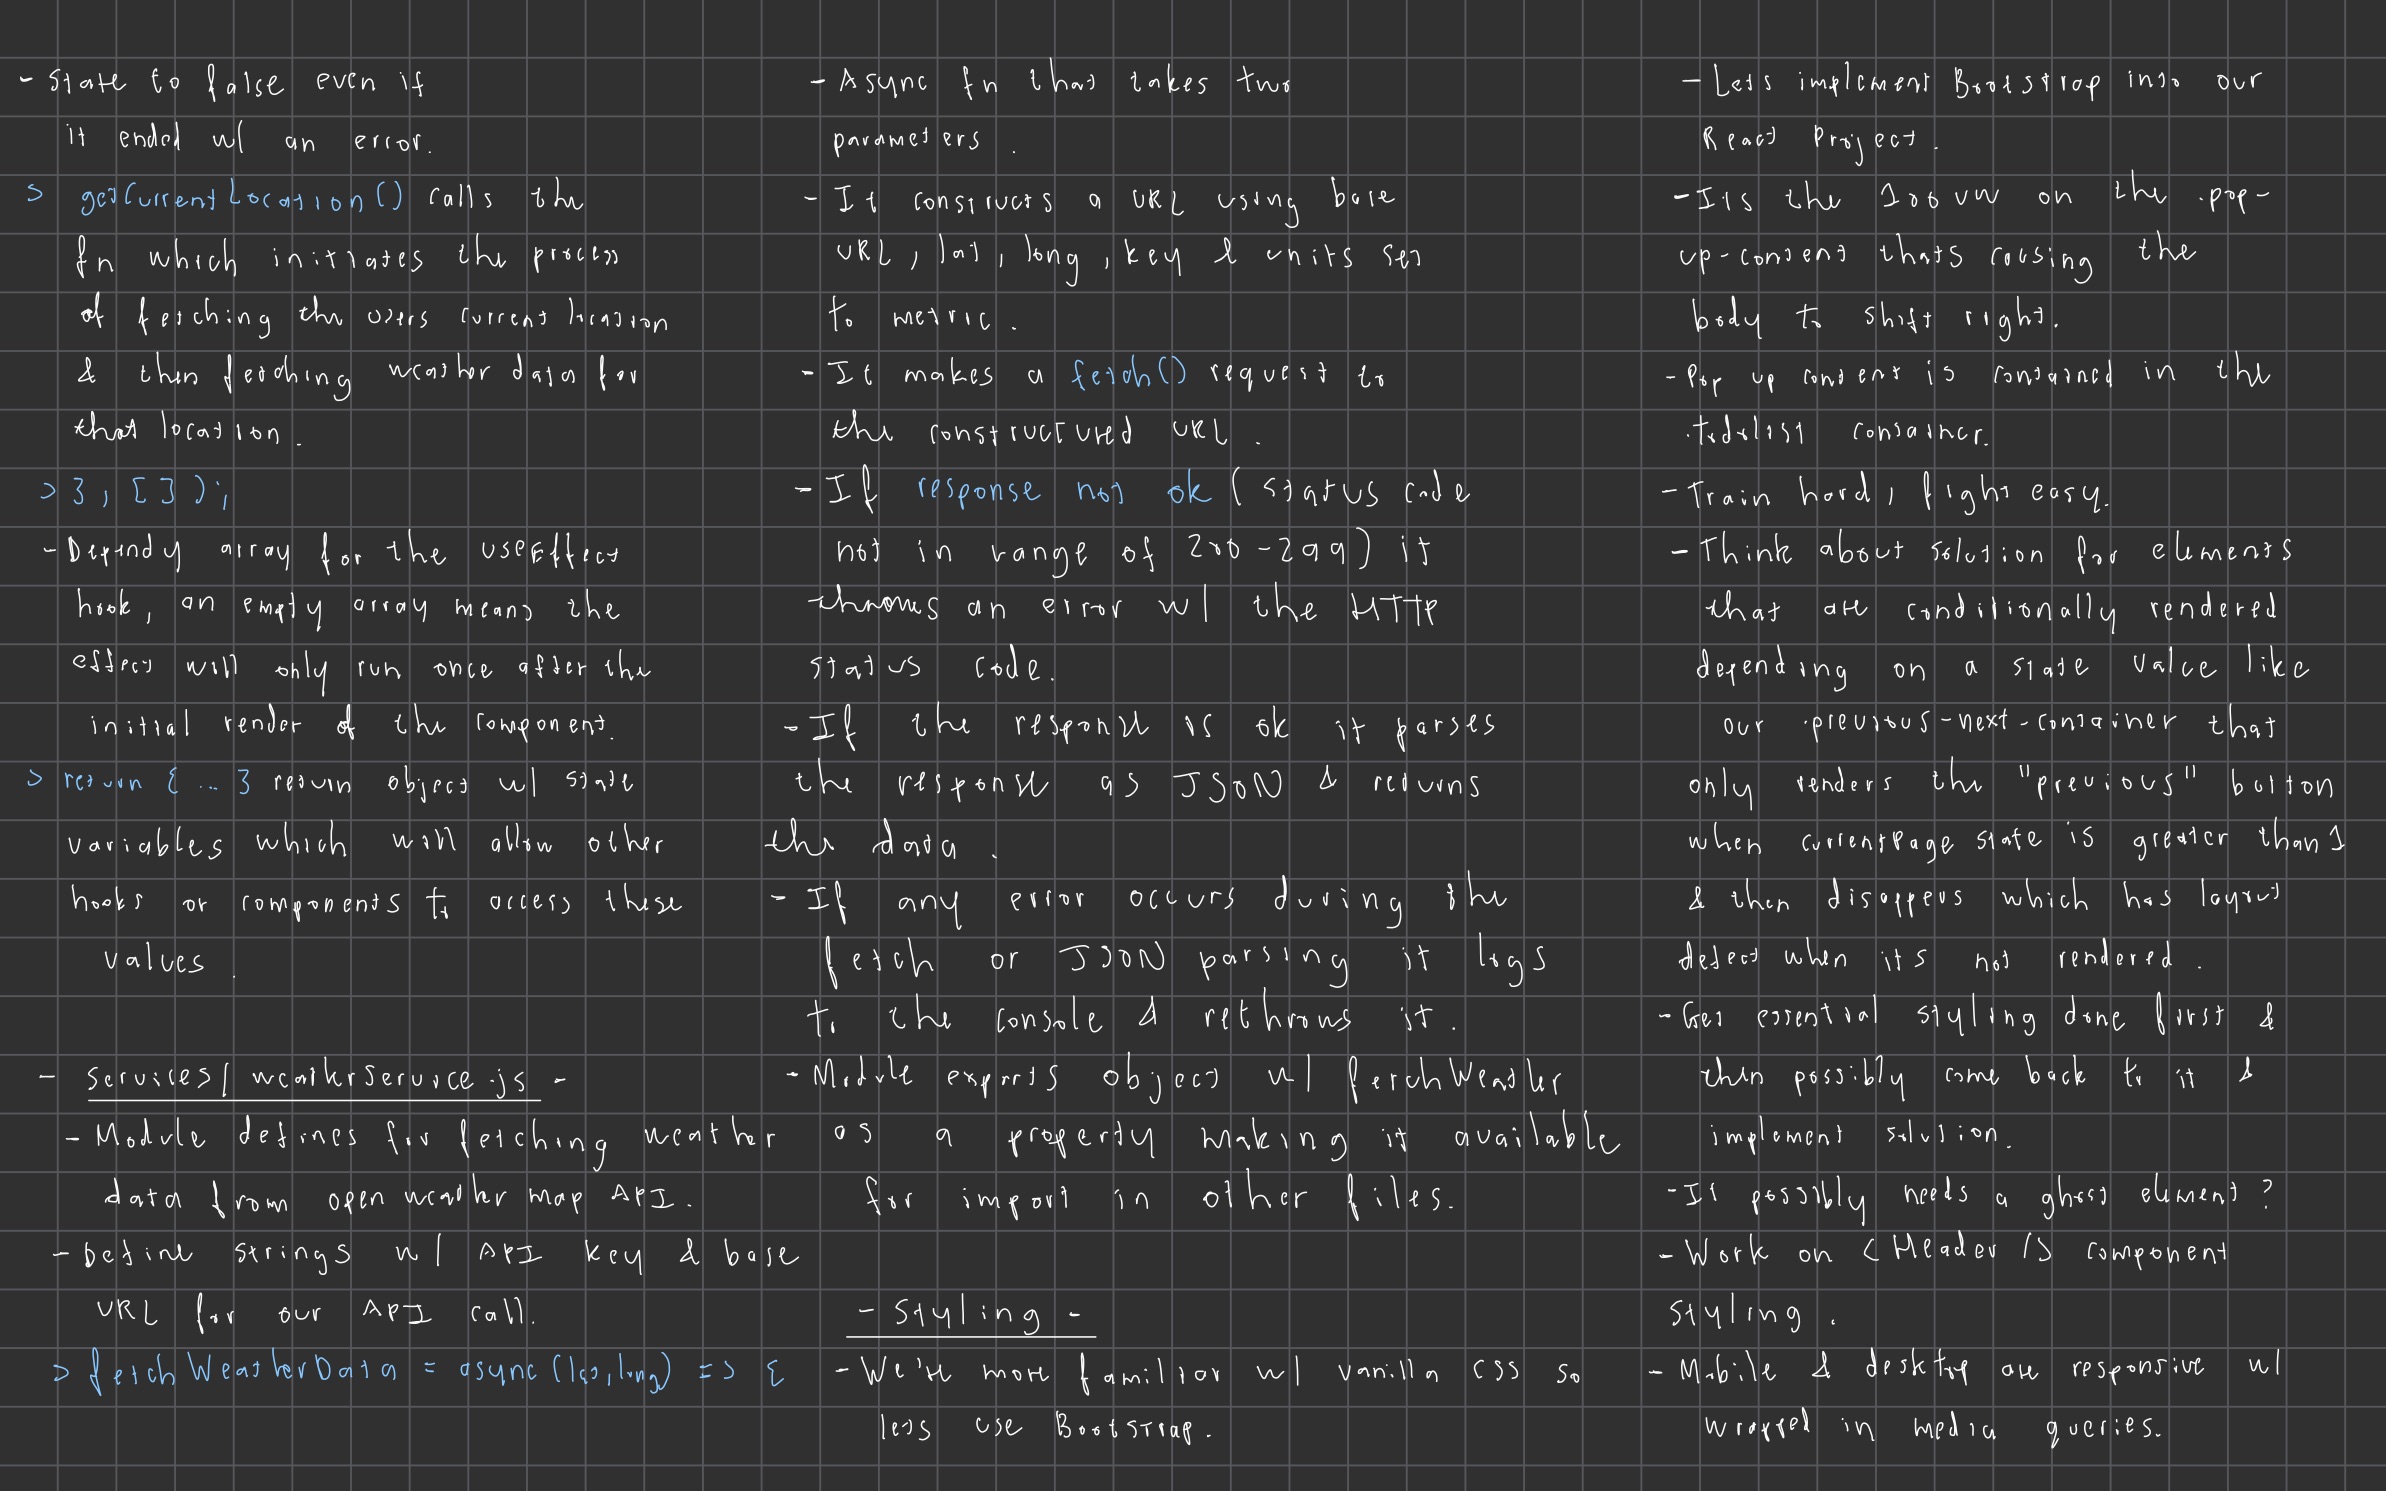 - State to false even if
it ended w/ an error.
> getCurrentLocation() calls the
fn which initiates the process
of fetching the users current location
& then fetching weather data for
that location.
> }, [ ] );
- Dependy array for the useEffect
hook, an empty array means the
effect will only run once after the
initial render of the component.
> return { ... } return object w/ state
variables which will allow other
hooks or components to access these
values.
- services/weatherService.js -
- Module defines for fetching weather
data from open weather map API.
- Define strings w/ API key & base
URL for our API call.
> fetchWeatherData = async (lat, long) => {
- Async fn that takes two
parameters.
- It constructs a URL using base
URL, lat, long, key & units set
to metric.
- It makes a fetch() request to
the constructured URL.
- If response not ok (status code
not in range of 200-299) it
throws an error w/ the HTTP
status code.
- If the response is ok it parses
the response as JSON & returns
the data.
- If any error occurs during the
fetch or JSON parsing it logs
to the console & rethrows it.
- Module exports object w/ fetchWeather
as a property making it available
for import in other files.
- Styling -
- We're more familiar w/ vanilla CSS so
lets use Bootstrap.
- Lets implement Bootstrap into our
React Project.
- Its the 100vw on the .pop-
up-content thats causing the
body to shift right.
- Pop up content is contained in the
.todolist container.
- Train hard, fight easy.
- Think about solution for elements
that are conditionally rendered
depending on a state value like
our .previous-next-container that
only renders the "previous" button
when currentPage state is greater than 1
& then disappers which has layout
defect when its not rendered.
- Get essential styling done first &
then possibly come back to it &
implement solution.
- It possibly needs a ghost element?
- Work on <Header /> component
styling.
- Mobile & desktop are responsive w/
wrapped in media queries.